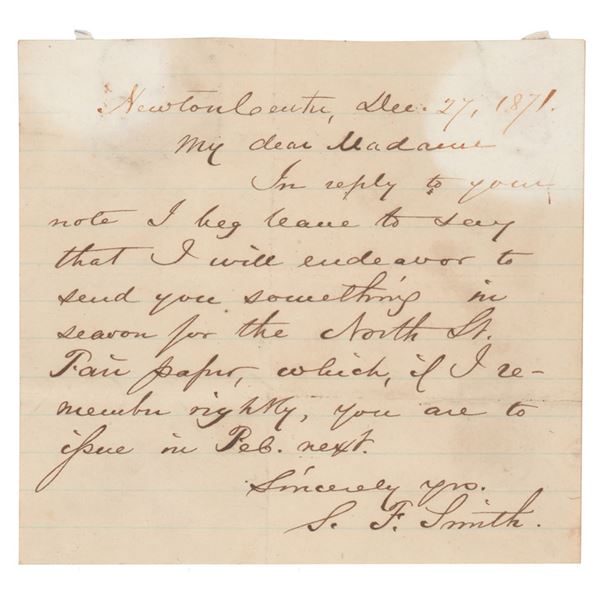 Newton Centre, Dec. 27, 1871.
My dear Madame
In reply to your
note I beg leave to say
that I will endeavor to
send you something in
season for the North St.
Fair paper, which, if I re-
member rightly, you are to
issue in Feb. next.
Sincerely yrs.
S. F. Smith.